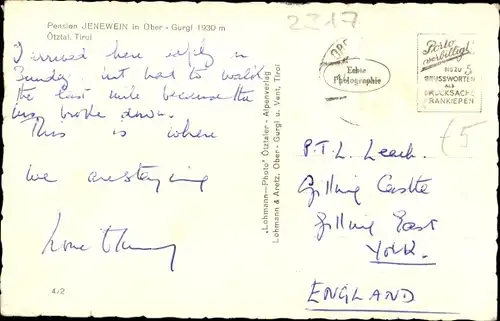 Pension JENEWEIN in Ober - Gurgl 1930 m
Ötztal, Tirol
2217
I arrived here safely on
Sunday. but had to walk
the last mile because the
bus broke down.
This is where
we are staying
Love
4/2
"Lohmann—Photo" Ötztaler - Alpenverlag
Lohmann & Aretz, Ober - Gurgl u. Vent, Tirol
Echte
Photographie
Porto
verbilligt
BIS ZU 5
GRUSSWORTEN
ALS
DRUCKSACHE
FRANKIEREN
P.T.L. Leach.
Gilling Castle
Gilling East
YORK.
ENGLAND